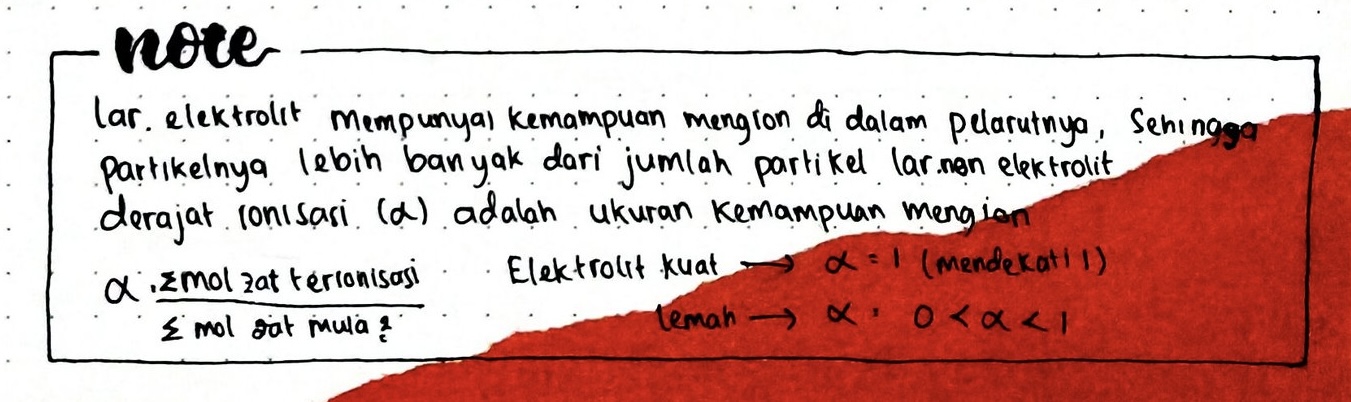 note
lar. elektrolit mempunyai kemampuan mengion di dalam pelarutnya, sehingga
partikelnya lebih banyak dari jumlah partikel lar.non elektrolit
derajat ionisasi (α) adalah ukuran kemampuan mengion
α = Σmol zat terionisasi
Σ mol zat mula²
Elektrolit kuat → α = 1 (mendekati 1)
lemah → α = 0 < α < 1